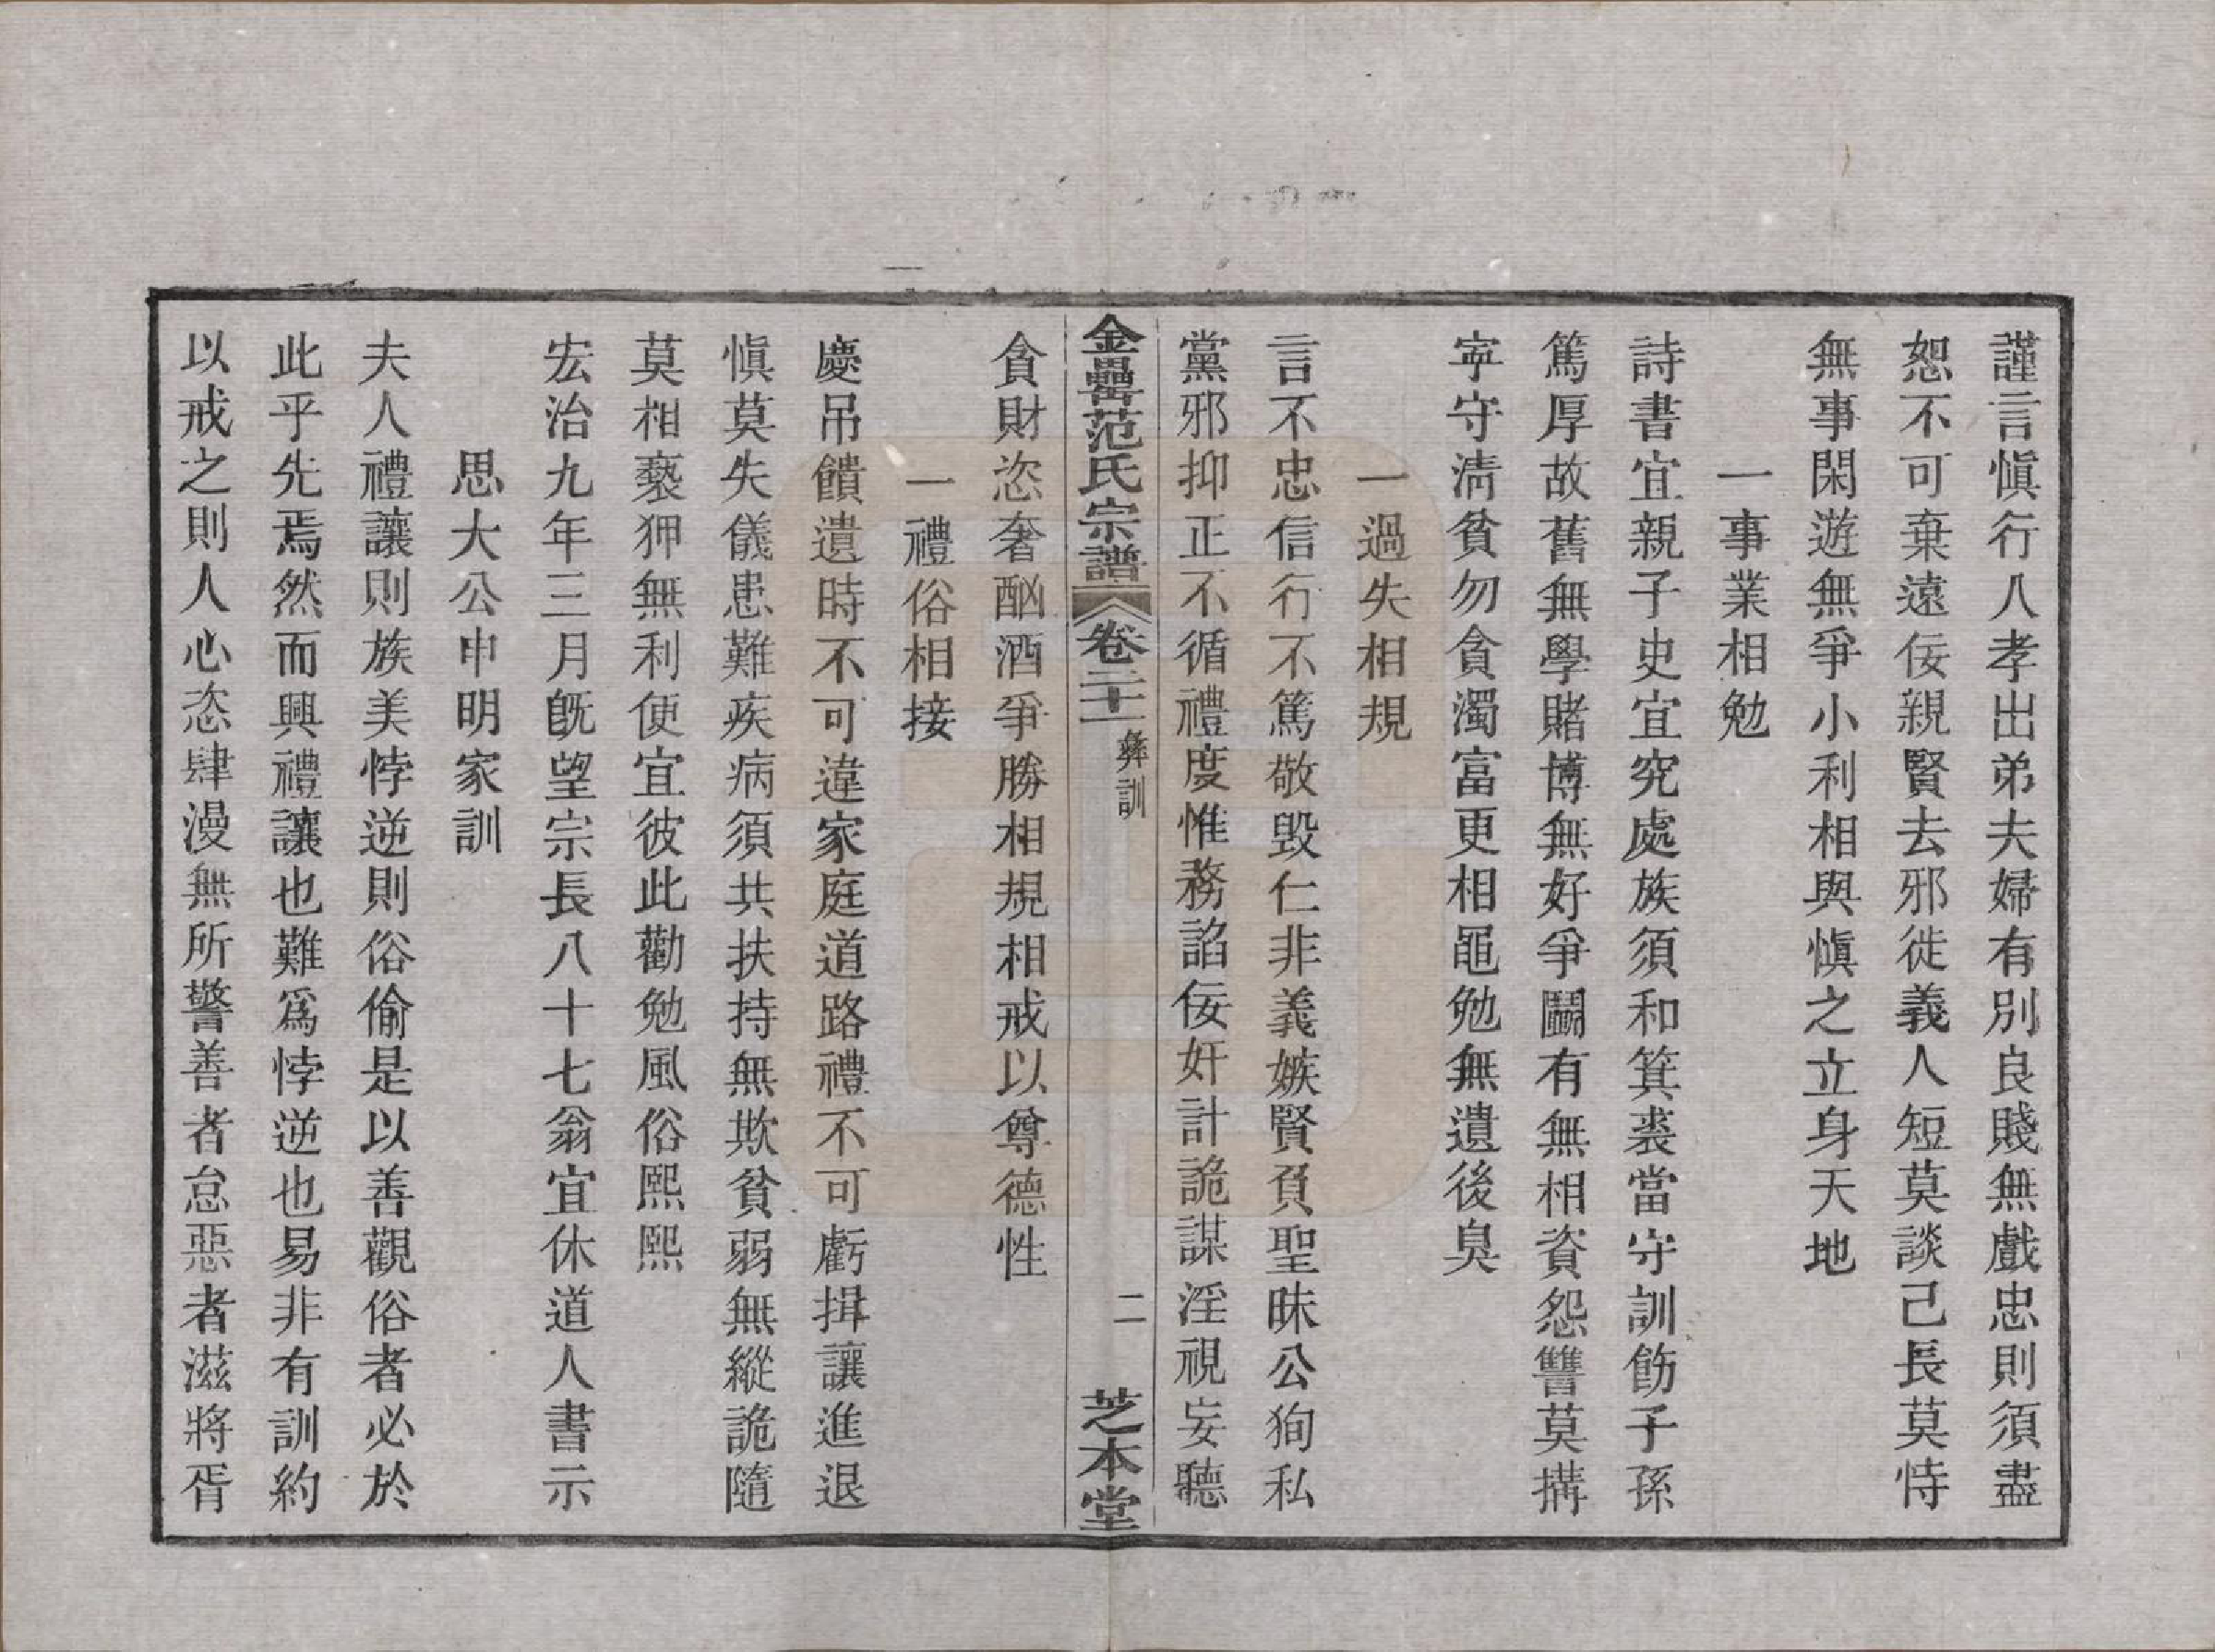 謹言愼行入孝出弟夫婦有別良賤無戲忠則須盡
恕不可棄遠佞親賢去邪徙義人短莫談己長莫恃
無事閑遊無爭小利相與愼之立身天地
一事業相勉
詩書宜親子史宜究處族須和箕裘當守訓飭子孫
篤厚故舊無學賭博無好爭鬭有無相資怨讐莫搆
寜守淸貧勿貪濁富更相黽勉無遺後臭
一過失相規
言不忠信行不篤敬毀仁非義嫉賢負聖昧公狥私
黨邪抑正不循禮度惟務諂佞奸計詭謀淫視妄聽
金罍范氏宗譜
卷二十一
彝訓
二
芝本堂
貪財恣奢酗酒爭勝相規相戒以尊德性
一禮俗相接
慶吊饋遺時不可違家庭道路禮不可虧揖讓進退
愼莫失儀患難疾病須共扶持無欺貧弱無縱詭隨
莫相褻狎無利便宜彼此勸勉風俗熙熙
宏治九年三月旣望宗長八十七翁宜休道人書示
思大公申明家訓
夫人禮讓則族美悖逆則俗偷是以善觀俗者必於
此乎先焉然而興禮讓也難爲悖逆也易非有訓約
以戒之則人心恣肆漫無所警善者怠惡者滋將胥